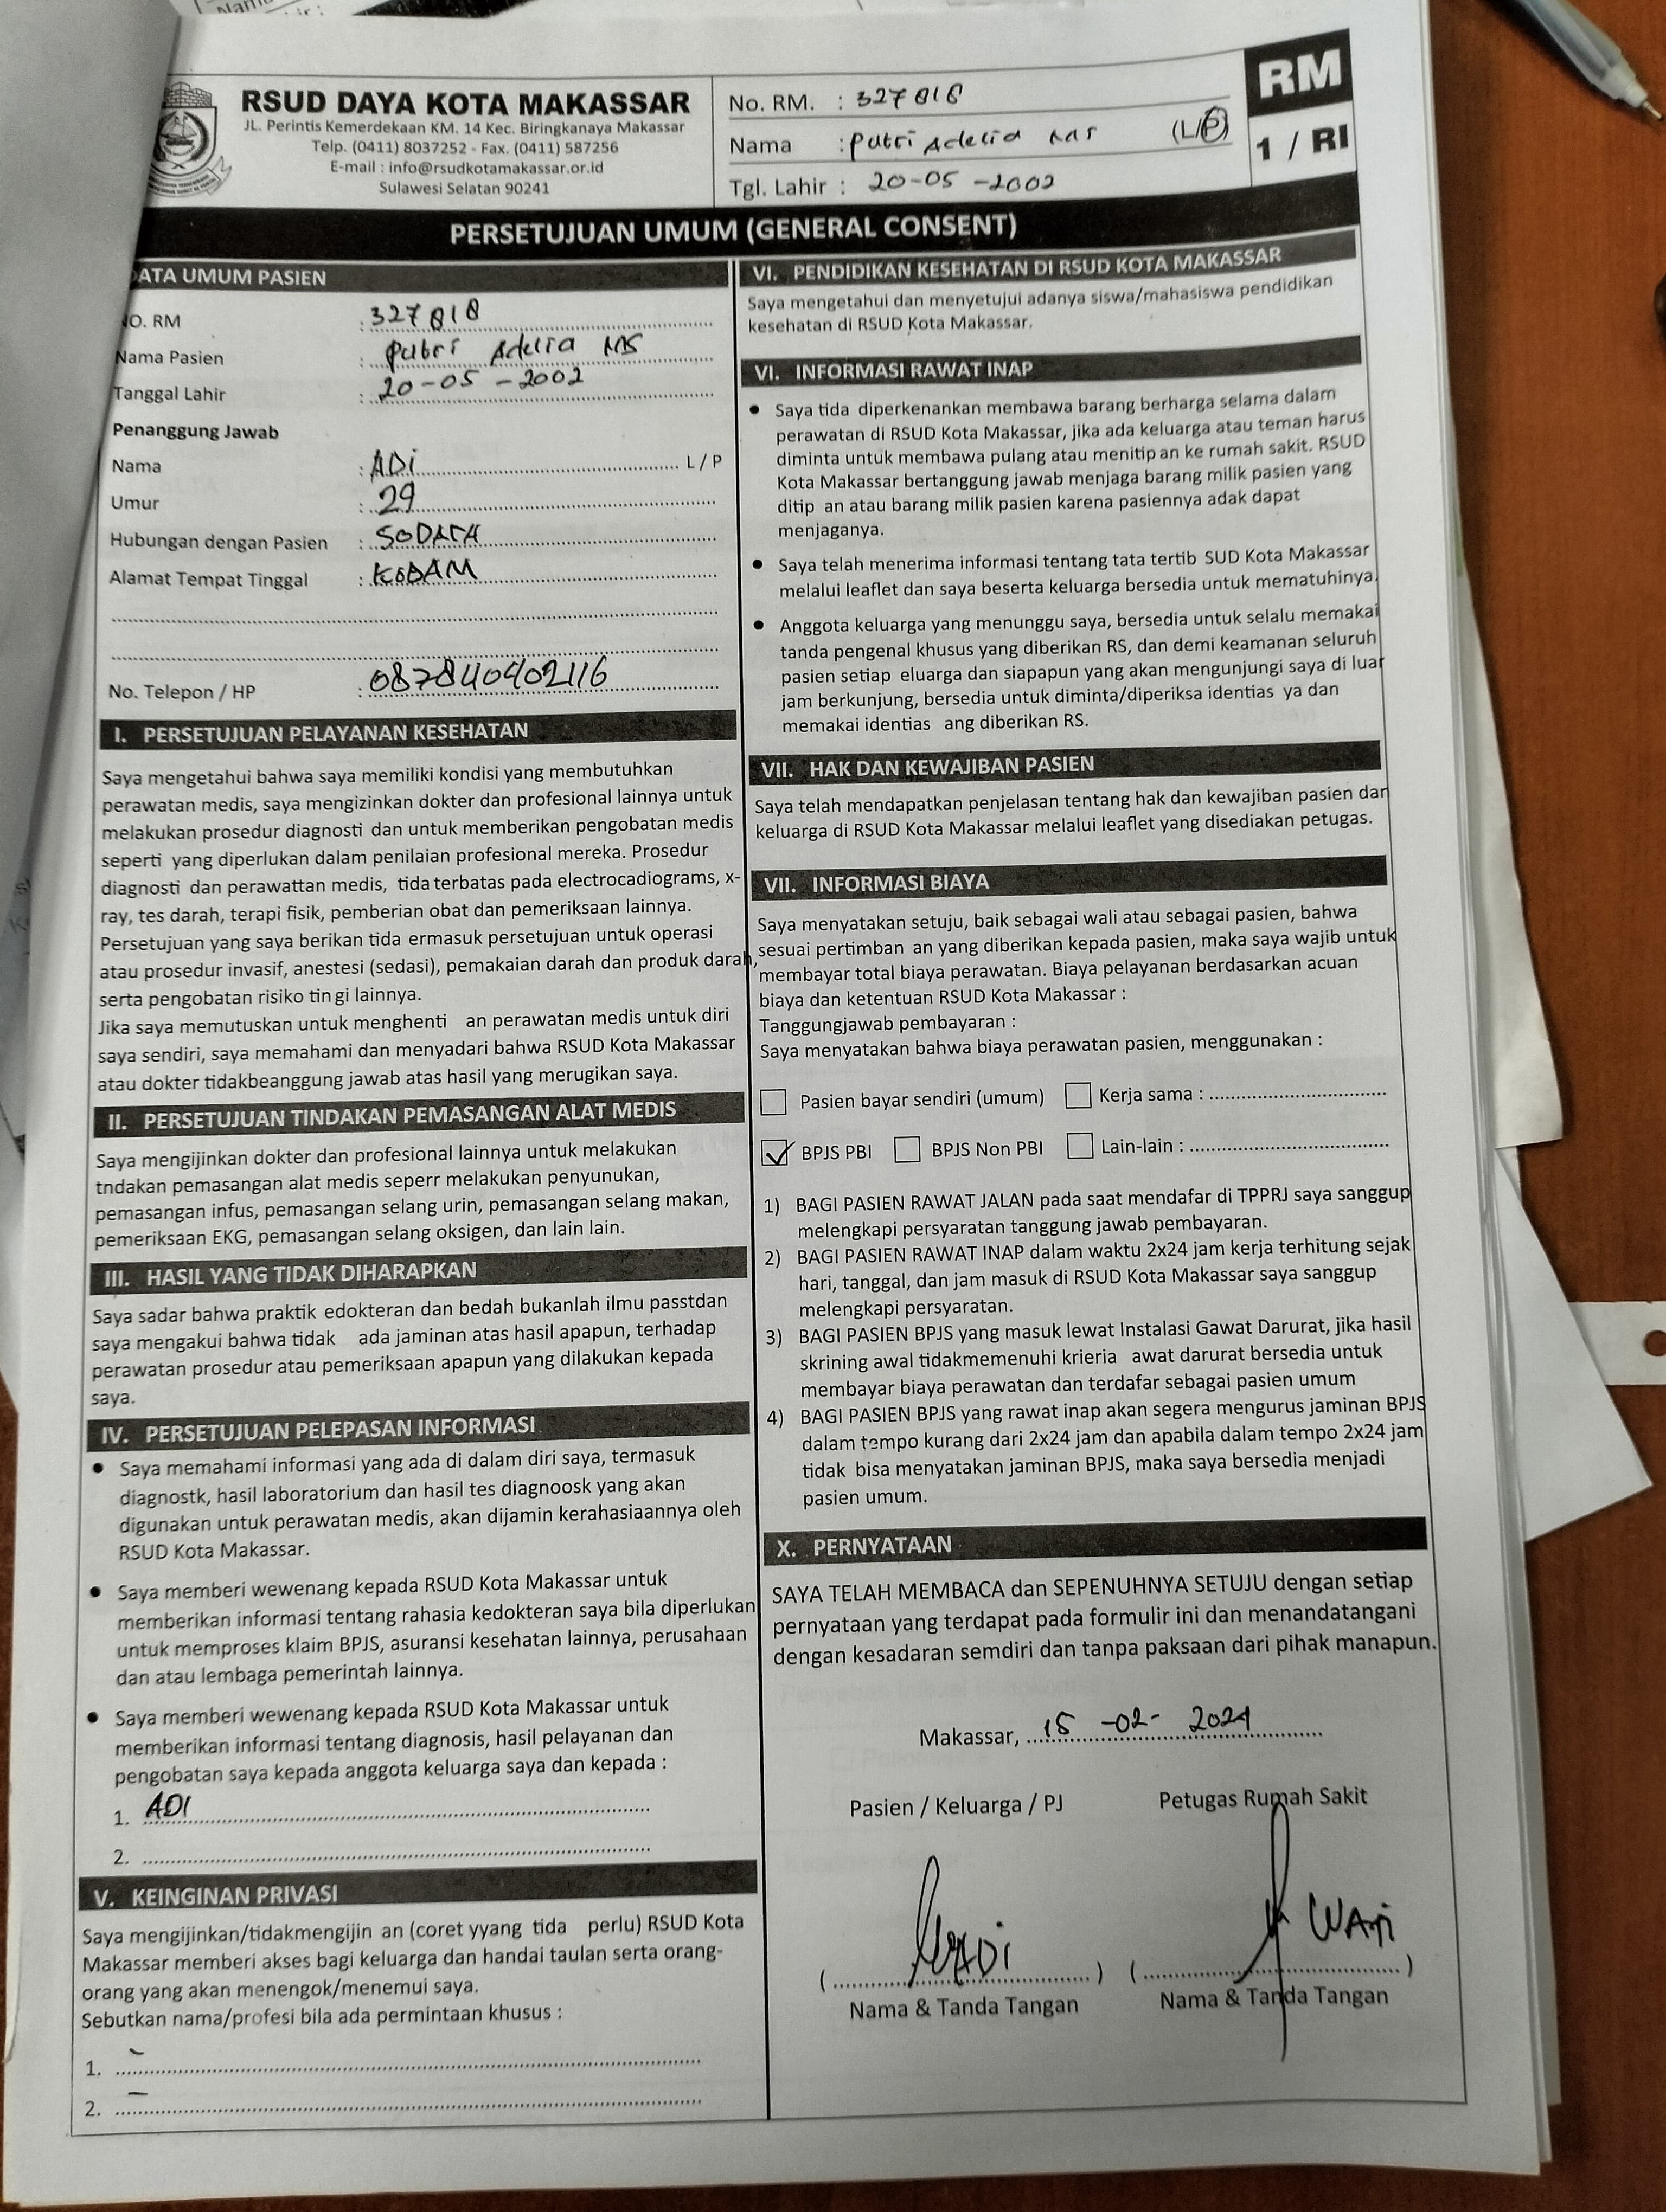 RSUD DAYA KOTA MAKASSAR
JL. Perintis Kemerdekaan KM. 14 Kec. Biringkanaya Makassar
Telp. (0411) 8037252 - Fax. (0411) 587256
E-mail : info@rsudkotamakassar.or.id
Sulawesi Selatan 90241
No. RM. : 327818
Nama : Putri Adelia MS (L/P)
Tgl. Lahir : 20-05-2002
RM
1 / RI
PERSETUJUAN UMUM (GENERAL CONSENT)
ATA UMUM PASIEN
NO. RM : 327818
Nama Pasien : Putri Adelia MS
Tanggal Lahir : 20-05-2002
Penanggung Jawab
Nama : ADi L / P
Umur : 29
Hubungan dengan Pasien : SODARA
Alamat Tempat Tinggal : KODAM
No. Telepon / HP : 087840402116
I. PERSETUJUAN PELAYANAN KESEHATAN
Saya mengetahui bahwa saya memiliki kondisi yang membutuhkan
perawatan medis, saya mengizinkan dokter dan profesional lainnya untuk
melakukan prosedur diagnosti dan untuk memberikan pengobatan medis
seperti yang diperlukan dalam penilaian profesional mereka. Prosedur
diagnosti dan perawattan medis, tida terbatas pada electrocadiograms, x-
ray, tes darah, terapi fisik, pemberian obat dan pemeriksaan lainnya.
Persetujuan yang saya berikan tida ermasuk persetujuan untuk operasi
atau prosedur invasif, anestesi (sedasi), pemakaian darah dan produk darah,
serta pengobatan risiko tin gi lainnya.
Jika saya memutuskan untuk menghenti an perawatan medis untuk diri
saya sendiri, saya memahami dan menyadari bahwa RSUD Kota Makassar
atau dokter tidakbeanggung jawab atas hasil yang merugikan saya.
II. PERSETUJUAN TINDAKAN PEMASANGAN ALAT MEDIS
Saya mengijinkan dokter dan profesional lainnya untuk melakukan
tndakan pemasangan alat medis seperr melakukan penyunukan,
pemasangan infus, pemasangan selang urin, pemasangan selang makan,
pemeriksaan EKG, pemasangan selang oksigen, dan lain lain.
III. HASIL YANG TIDAK DIHARAPKAN
Saya sadar bahwa praktik edokteran dan bedah bukanlah ilmu passtdan
saya mengakui bahwa tidak ada jaminan atas hasil apapun, terhadap
perawatan prosedur atau pemeriksaan apapun yang dilakukan kepada
saya.
IV. PERSETUJUAN PELEPASAN INFORMASI
• Saya memahami informasi yang ada di dalam diri saya, termasuk
diagnostk, hasil laboratorium dan hasil tes diagnoosk yang akan
digunakan untuk perawatan medis, akan dijamin kerahasiaannya oleh
RSUD Kota Makassar.
• Saya memberi wewenang kepada RSUD Kota Makassar untuk
memberikan informasi tentang rahasia kedokteran saya bila diperlukan
untuk memproses klaim BPJS, asuransi kesehatan lainnya, perusahaan
dan atau lembaga pemerintah lainnya.
• Saya memberi wewenang kepada RSUD Kota Makassar untuk
memberikan informasi tentang diagnosis, hasil pelayanan dan
pengobatan saya kepada anggota keluarga saya dan kepada :
1. ADI
2.
V. KEINGINAN PRIVASI
Saya mengijinkan/tidakmengijin an (coret yyang tida perlu) RSUD Kota
Makassar memberi akses bagi keluarga dan handai taulan serta orang-
orang yang akan menengok/menemui saya.
Sebutkan nama/profesi bila ada permintaan khusus :
1. -
2. -
VI. PENDIDIKAN KESEHATAN DI RSUD KOTA MAKASSAR
Saya mengetahui dan menyetujui adanya siswa/mahasiswa pendidikan
kesehatan di RSUD Kota Makassar.
VI. INFORMASI RAWAT INAP
• Saya tida diperkenankan membawa barang berharga selama dalam
perawatan di RSUD Kota Makassar, jika ada keluarga atau teman harus
diminta untuk membawa pulang atau menitip an ke rumah sakit. RSUD
Kota Makassar bertanggung jawab menjaga barang milik pasien yang
ditip an atau barang milik pasien karena pasiennya adak dapat
menjaganya.
• Saya telah menerima informasi tentang tata tertib SUD Kota Makassar
melalui leaflet dan saya beserta keluarga bersedia untuk mematuhinya.
• Anggota keluarga yang menunggu saya, bersedia untuk selalu memakai
tanda pengenal khusus yang diberikan RS, dan demi keamanan seluruh
pasien setiap eluarga dan siapapun yang akan mengunjungi saya di luar
jam berkunjung, bersedia untuk diminta/diperiksa identias ya dan
memakai identias ang diberikan RS.
VII. HAK DAN KEWAJIBAN PASIEN
Saya telah mendapatkan penjelasan tentang hak dan kewajiban pasien dan
keluarga di RSUD Kota Makassar melalui leaflet yang disediakan petugas.
VII. INFORMASI BIAYA
Saya menyatakan setuju, baik sebagai wali atau sebagai pasien, bahwa
sesuai pertimban an yang diberikan kepada pasien, maka saya wajib untuk
membayar total biaya perawatan. Biaya pelayanan berdasarkan acuan
biaya dan ketentuan RSUD Kota Makassar :
Tanggungjawab pembayaran :
Saya menyatakan bahwa biaya perawatan pasien, menggunakan :
☐ Pasien bayar sendiri (umum) ☐ Kerja sama :
☑ BPJS PBI ☐ BPJS Non PBI ☐ Lain-lain :
1) BAGI PASIEN RAWAT JALAN pada saat mendafar di TPPRJ saya sanggup
melengkapi persyaratan tanggung jawab pembayaran.
2) BAGI PASIEN RAWAT INAP dalam waktu 2x24 jam kerja terhitung sejak
hari, tanggal, dan jam masuk di RSUD Kota Makassar saya sanggup
melengkapi persyaratan.
3) BAGI PASIEN BPJS yang masuk lewat Instalasi Gawat Darurat, jika hasil
skrining awal tidakmemenuhi krieria awat darurat bersedia untuk
membayar biaya perawatan dan terdafar sebagai pasien umum
4) BAGI PASIEN BPJS yang rawat inap akan segera mengurus jaminan BPJS
dalam tempo kurang dari 2x24 jam dan apabila dalam tempo 2x24 jam
tidak bisa menyatakan jaminan BPJS, maka saya bersedia menjadi
pasien umum.
X. PERNYATAAN
SAYA TELAH MEMBACA dan SEPENUHNYA SETUJU dengan setiap
pernyataan yang terdapat pada formulir ini dan menandatangani
dengan kesadaran semdiri dan tanpa paksaan dari pihak manapun.
Makassar, 15-02-2021
Pasien / Keluarga / PJ Petugas Rumah Sakit
(ADi) (WATi)
Nama & Tanda Tangan Nama & Tanda Tangan